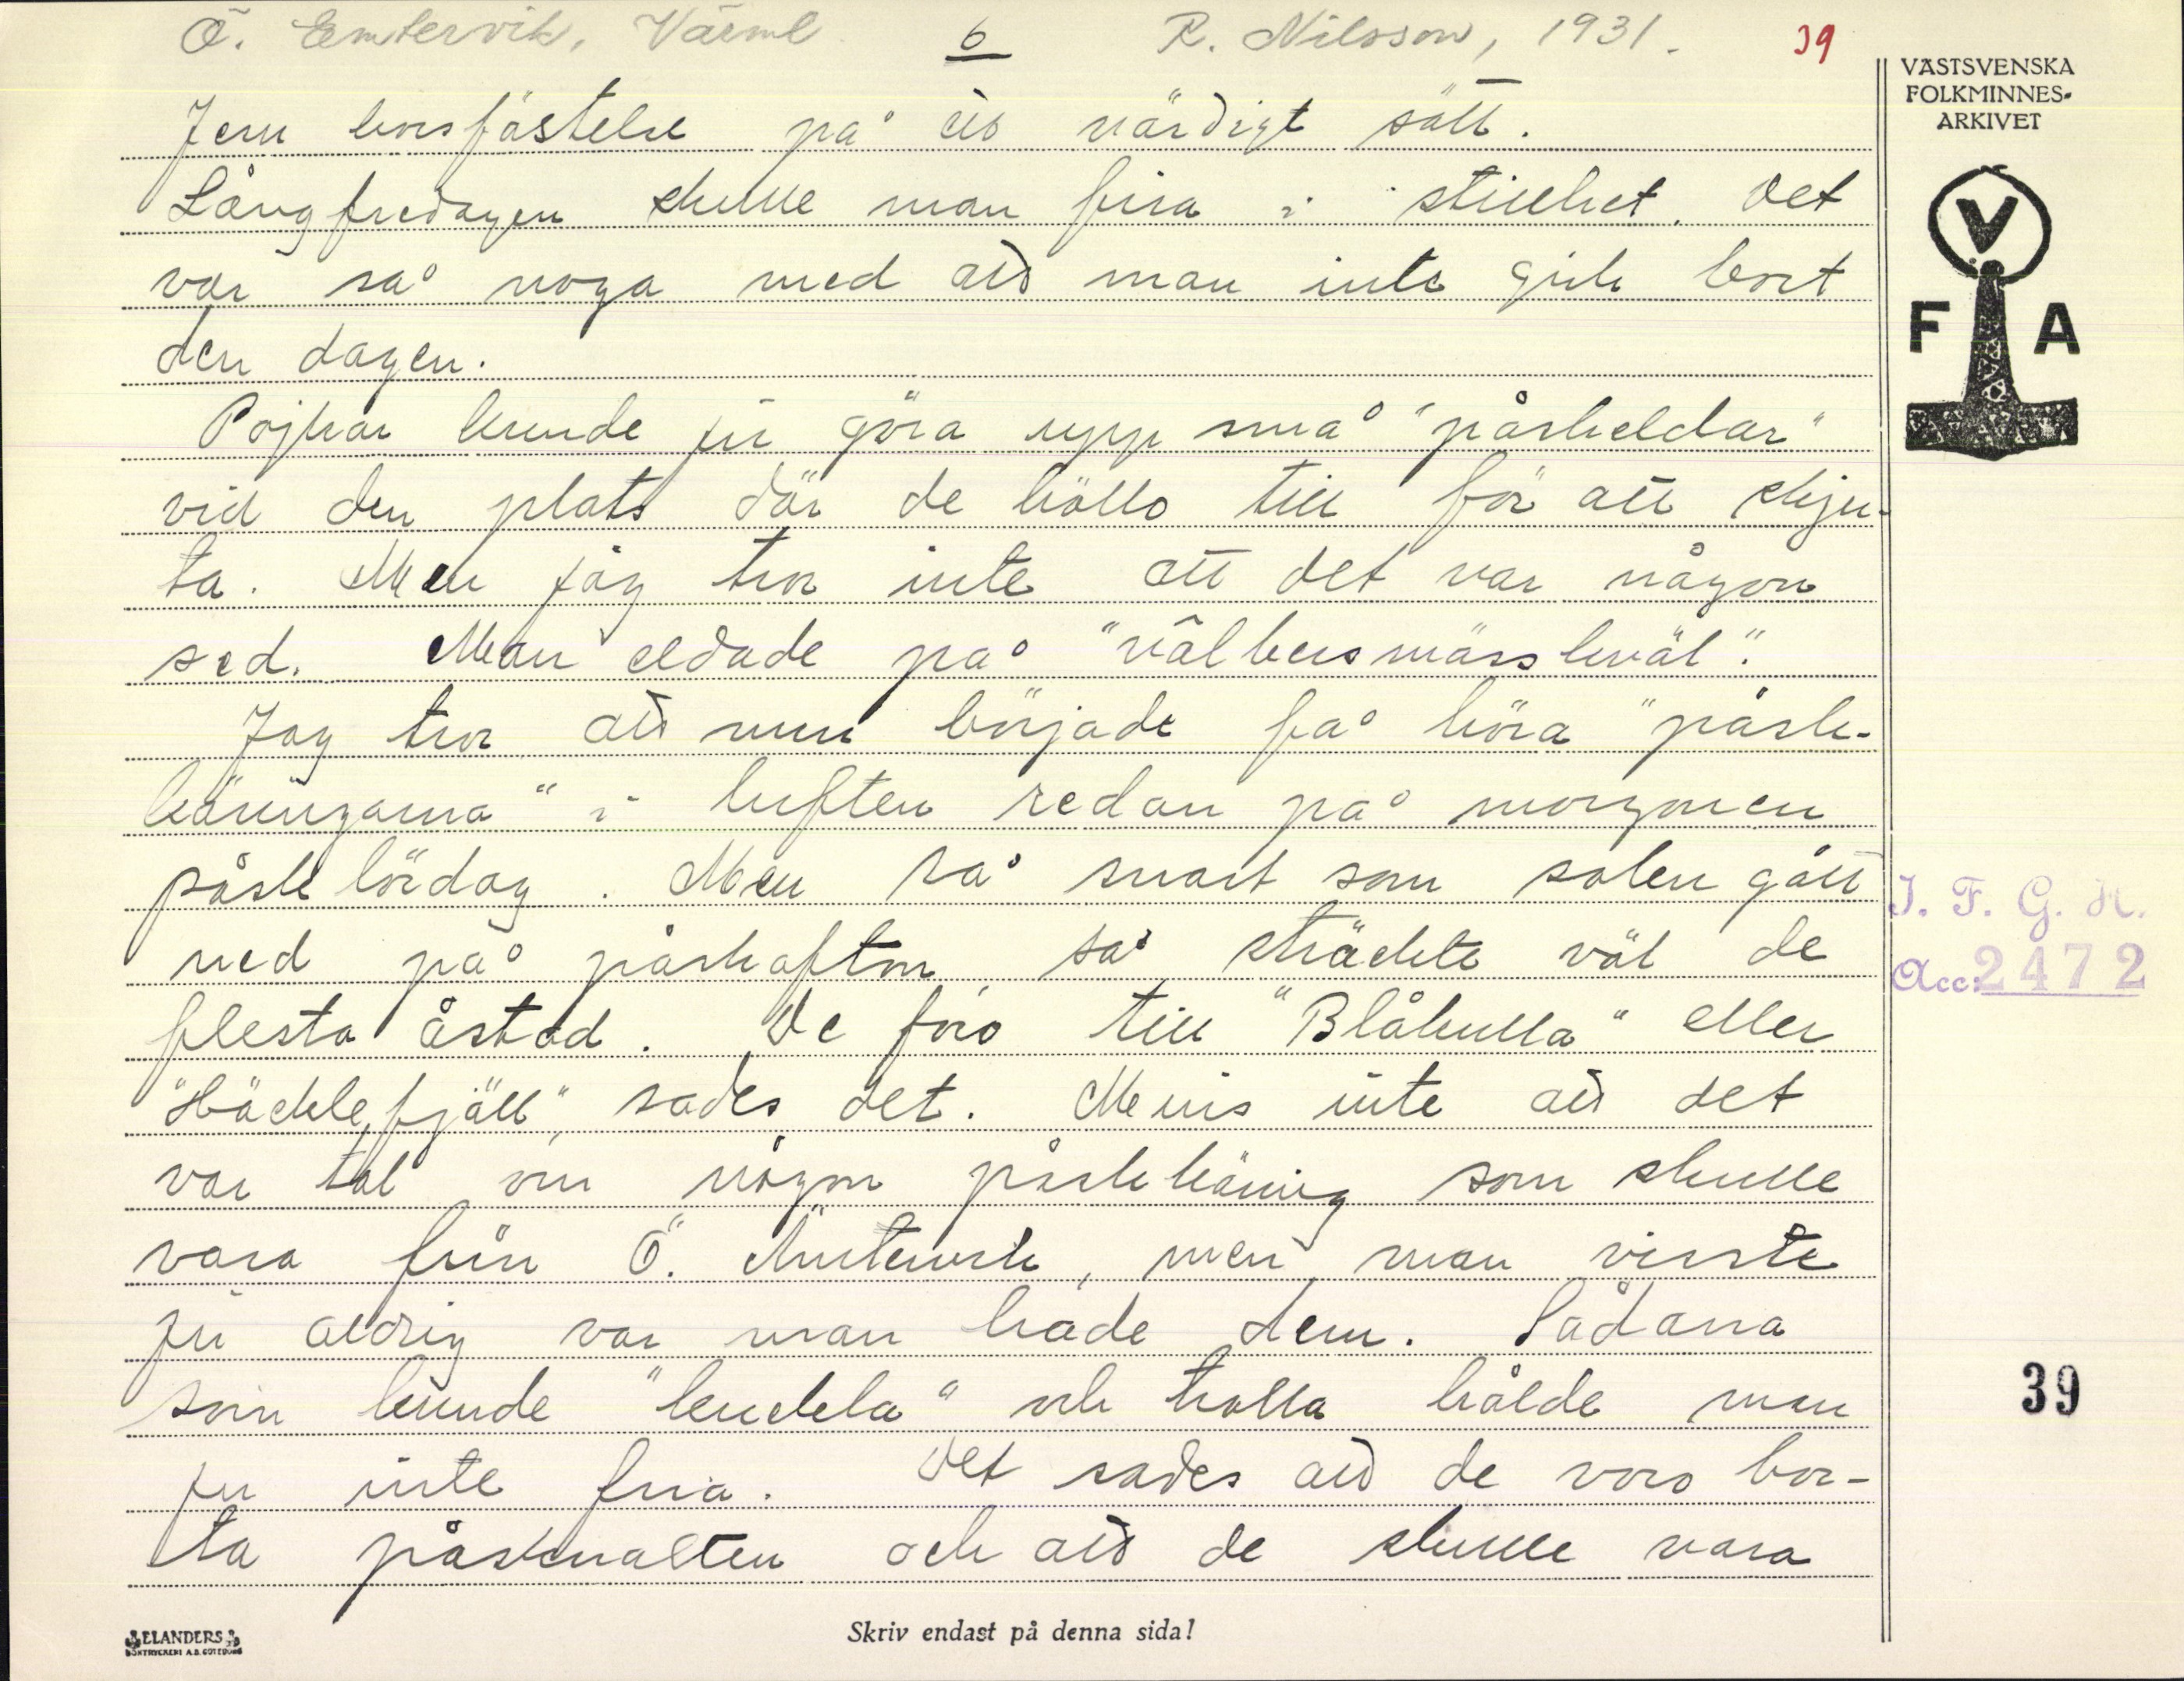 Ö. Emtervik, Värml. 6 R. Nilsson, 1931. 39
VÄSTSVENSKA
FOLKMINNES-
ARKIVET
V
F A
Jesu korsfästelse på ett värdigt sätt.
Långfredagen skulle man fira i stillhet. Det
var så noga med att man inte gick bort
den dagen.
Pojkar kunde ju göra upp små "påskeldar"
vid den plats där de höllo till för att skju-
ta. Men jag tror inte att det var någon
sed. Man eldade på "vålbersmässkväl".
Jag tror att man började få höra "påsk-
käringarna" i luften redan på morgonen
påsklördag. Men så snart som solen gått
ned på påskafton så sträckte väl de
flesta åstad. De foro till "Blåkulla" eller
"Häcklefjäll", sades det. Minns inte att det
var tal om någon påskkäring som skulle
vara från Ö. Ämtervik, men man visste
ju aldrig var man hade dem. Sådana
som kunde "kuckla" och trolla hålde man
ju inte fria. Det sades att de voro bor-
ta påsknatten och att de skulle vara
I. F. G. H.
Acc: 2472
39
ELANDERS
BOKTRYCKERI A.B. GÖTEBORG
Skriv endast på denna sida!